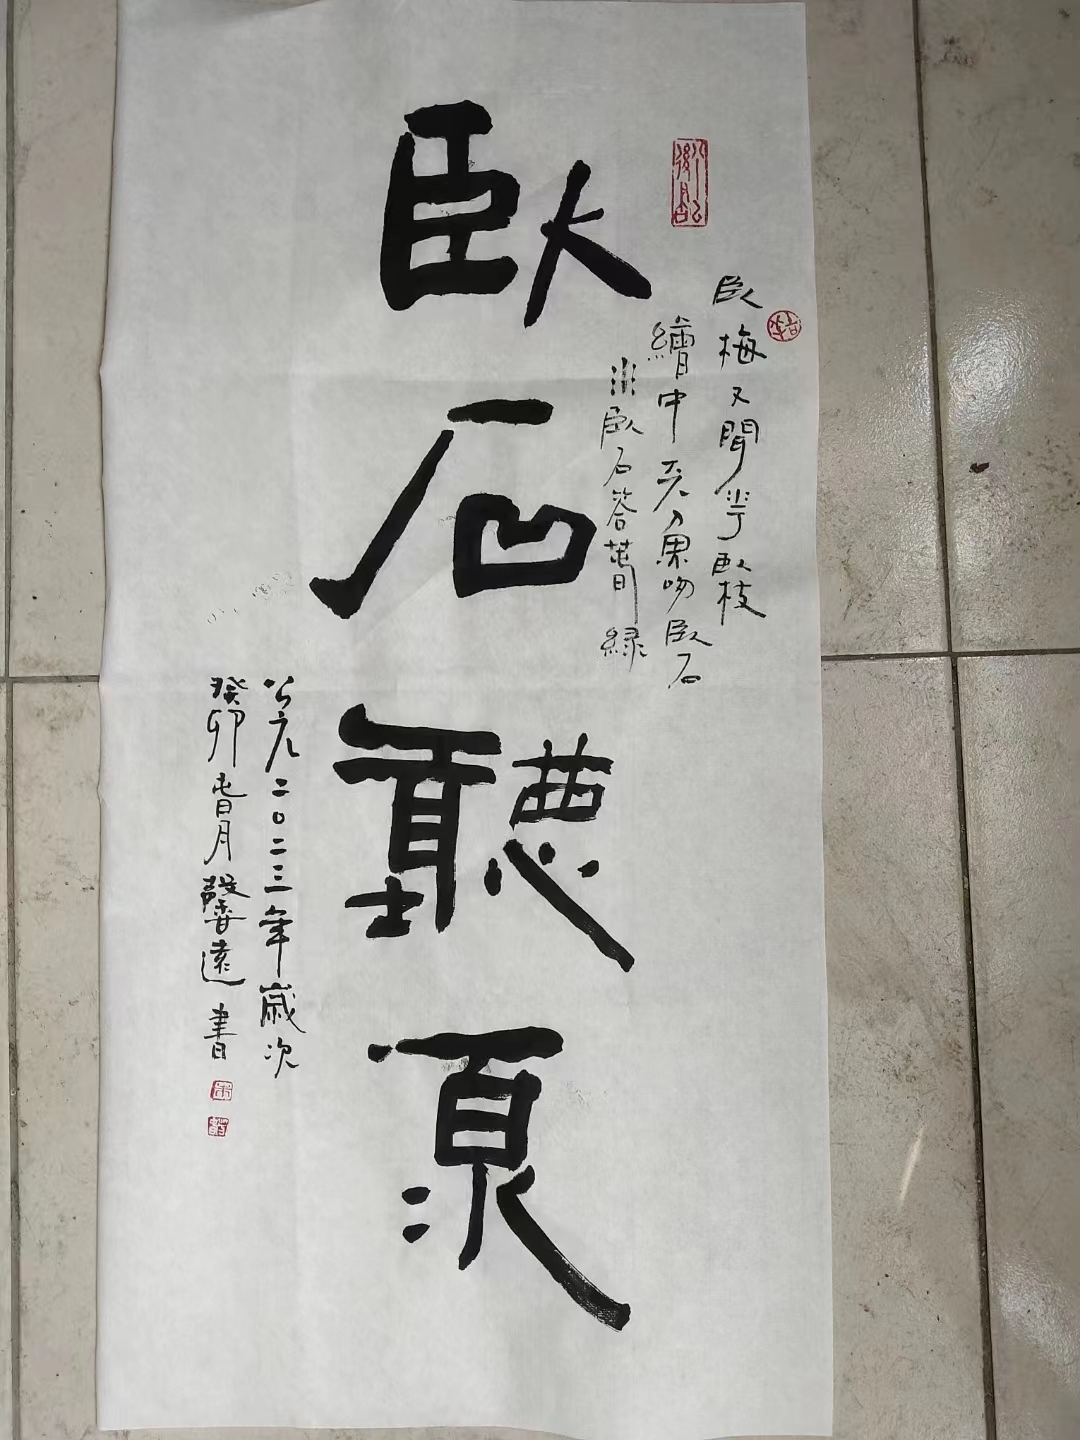 臥梅又聞花臥枝
繪中天魚吻臥石
水臥石答春綠
臥石聽泉
公元二〇二三年歲次
癸卯春月馨遠書